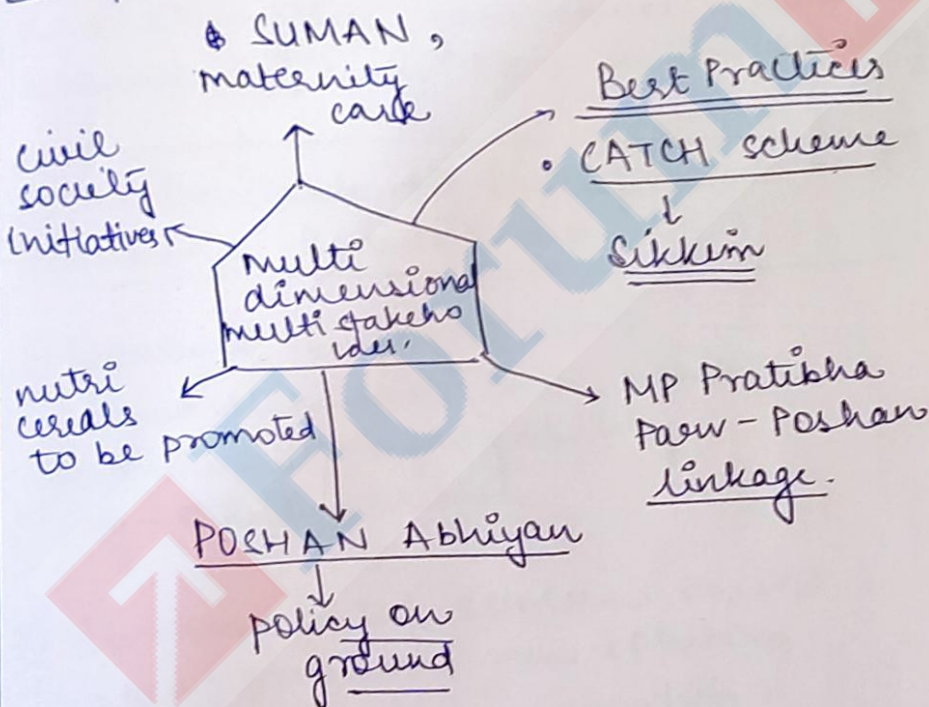 SUMAN,
maternity
care
Best Practices
• CATCH scheme
↓
Sikkim
civil
society
initiatives
multi
dimensional
multi stakeho
lder.
nutri
cereals
to be promoted
MP Pratibha
Parv - Poshan
linkage.
POSHAN Abhiyan
↓
policy on
ground
Forum